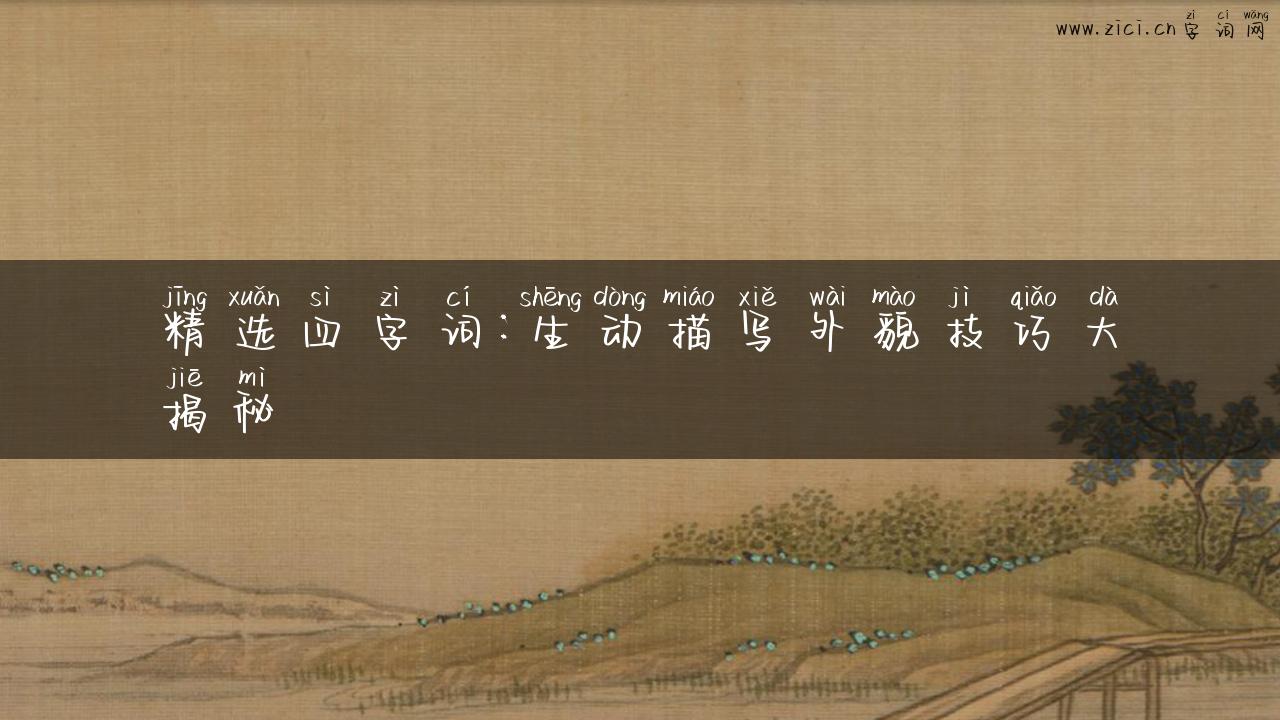 zì cí wǎng
www.zici.cn字词网
jīng xuǎn sì zì cí shēng dòng miáo xiě wài mào jì qiǎo dà
精选四字词:生动描写外貌技巧大
jiē mì
揭秘